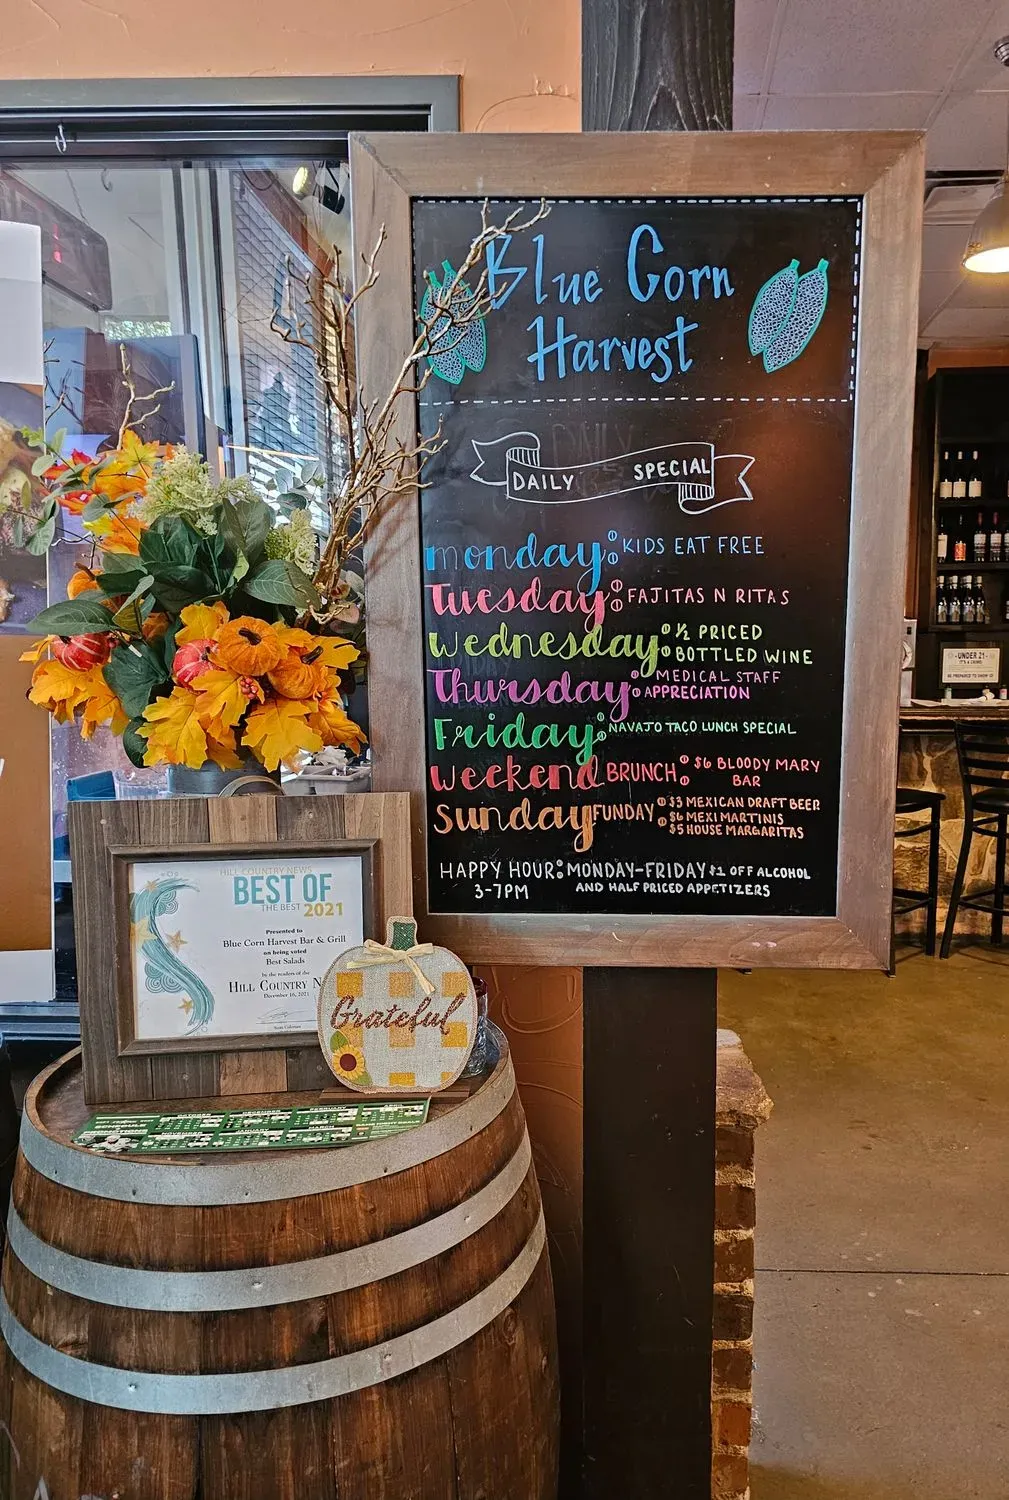 Blue Corn
Harvest
DAILY SPECIAL
monday: KIDS EAT FREE
Tuesday: FAJITAS N RITAS
Wednesday: ½ PRICED
BOTTLED WINE
Thursday: MEDICAL STAFF
APPRECIATION
Friday: NAVAJO TACO LUNCH SPECIAL
weekend BRUNCH: $6 BLOODY MARY
BAR
Sunday FUNDAY: $3 MEXICAN DRAFT BEER
$6 MEXI MARTINIS
$5 HOUSE MARGARITAS
HAPPY HOUR: MONDAY-FRIDAY $1 OFF ALCOHOL
3-7PM AND HALF PRICED APPETIZERS
UNDER 21
HILL COUNTRY NEWS
BEST OF
THE BEST 2021
Presented to
Blue Corn Harvest Bar & Grill
on being voted
Best Salads
by the readers of the
HILL COUNTRY N
December 16, 2021
Grateful
OCTOBER DECEMBER FEBRUARY
NOVEMBER JANUARY MARCH